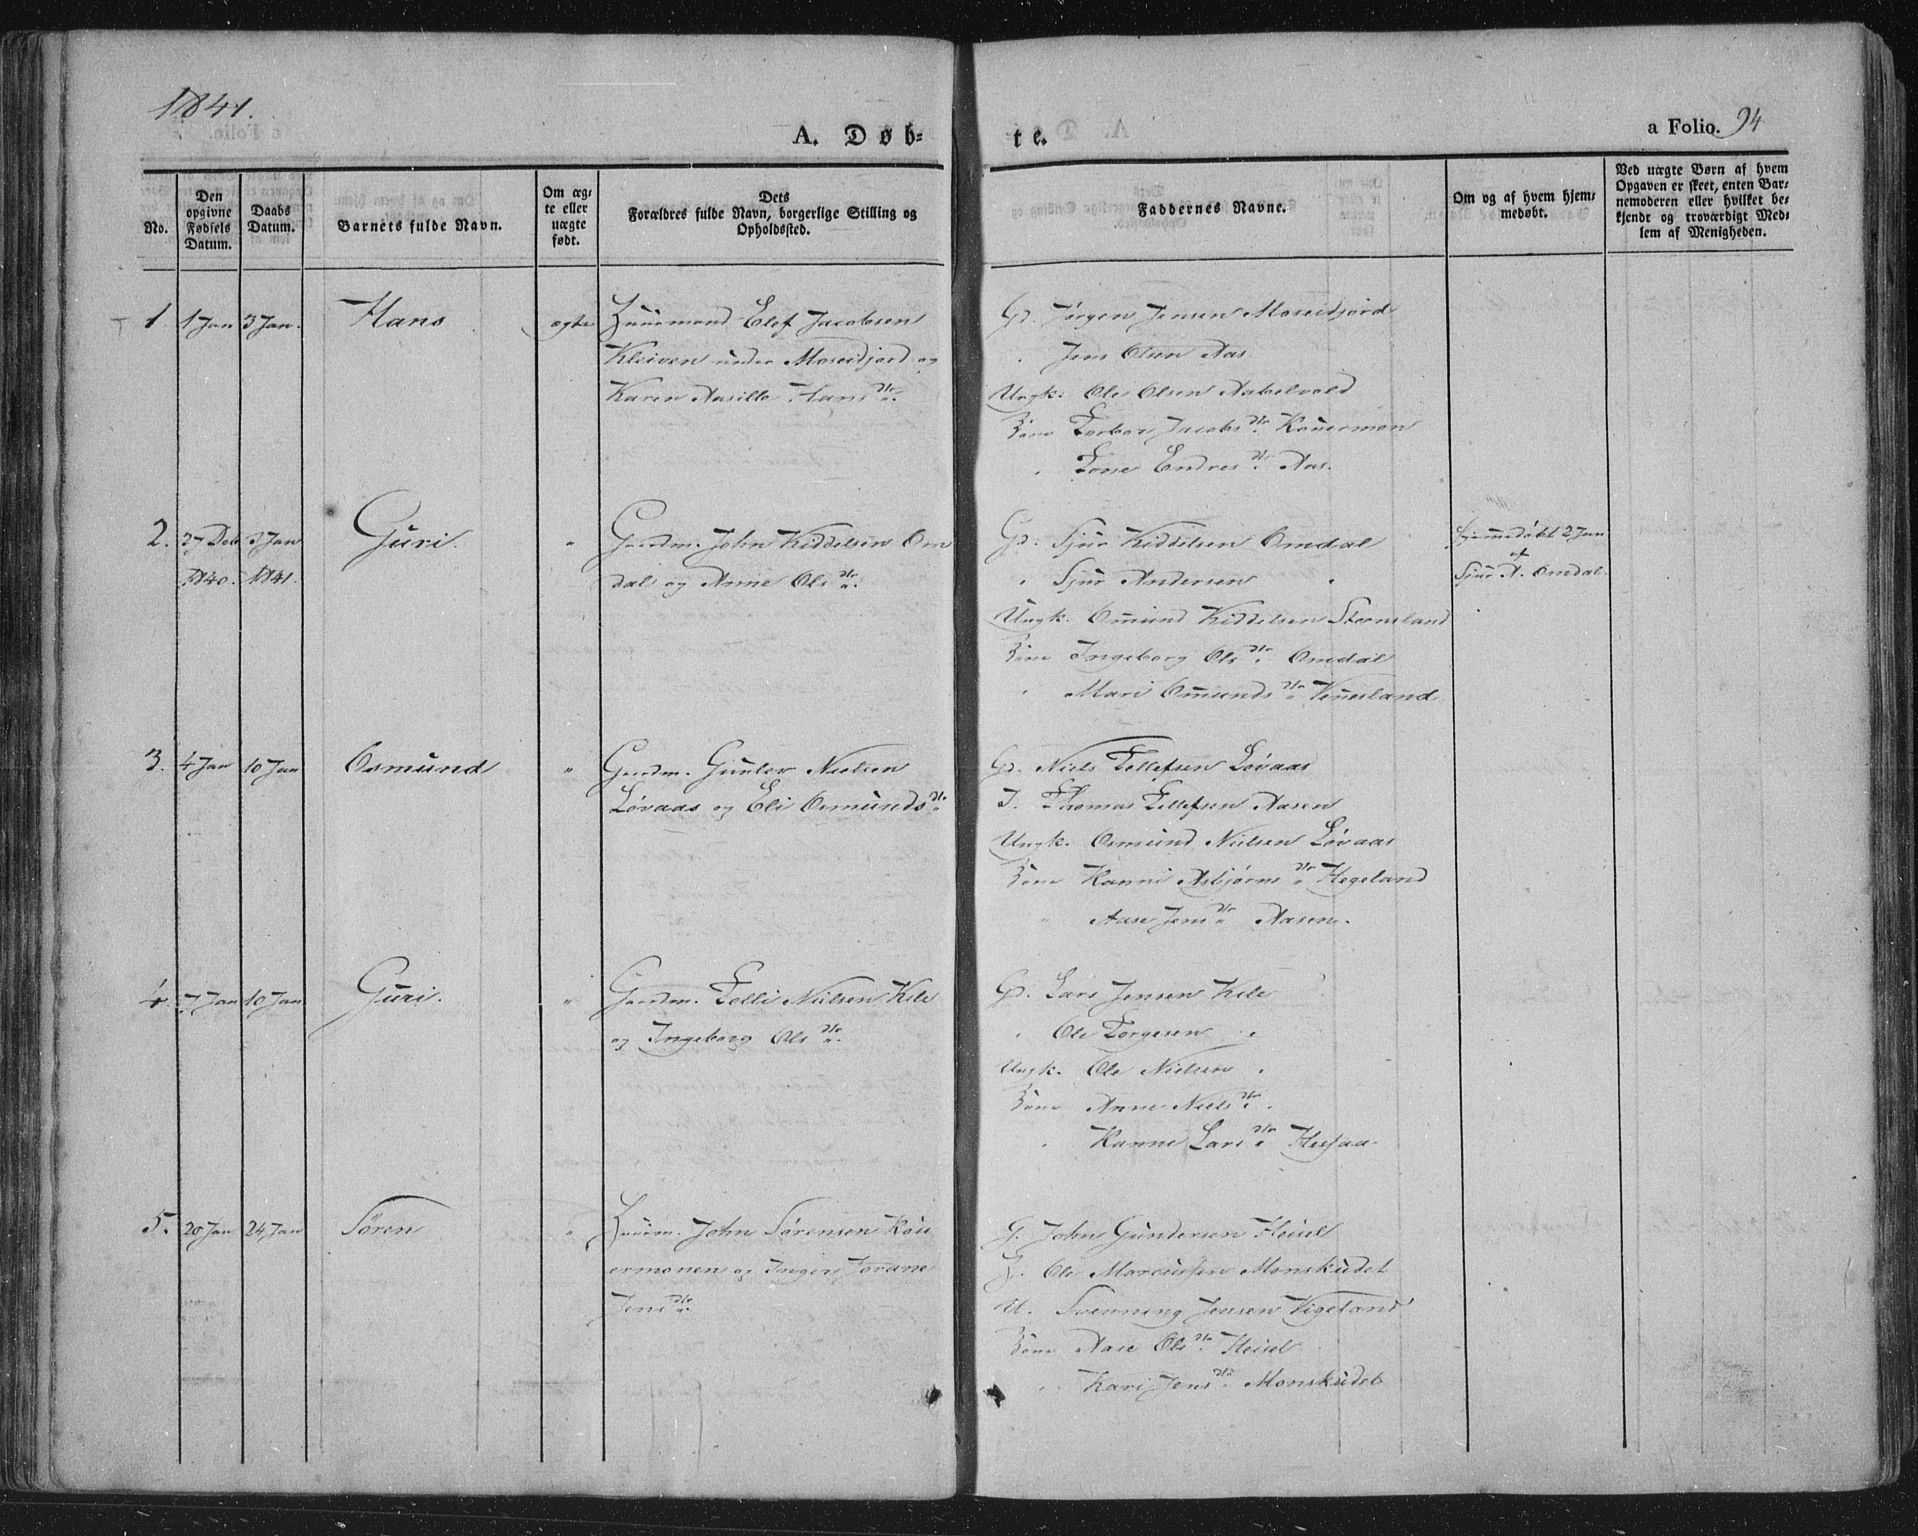 1841.
A. Døb-
te.
a Folio. 94
No.
Den opgivne Fødsels Datum.
Daabs Datum.
Barnets fulde Navn.
Om æg- te eller uægte født.
Dets Forældres fulde Navn, borgerlige Stilling og Opholdssted.
Faddernes Navne.
Om og af hvem hjem- medøbt.
Ved uægte Børn af hvem Opgaven er skeet, enten Bar- nemoderen eller hvilket be- kjendt og troværdigt Med- lem af Menigheden.
1. 1 Jan 3 Jan. Hans ægte Huusmand Elef Jacobsen
Kleiven under Moseidjord og
Karen Aasille Hans Dtr.
Gd. Jørgen Jensen Moseidjord
" Jens Olsen Aas
Ungk. Ole Olsen Aabelvold
Kone Torbor Jacobs Dtr. Kouermon
" Tone Endres Dtr. Aas.
2. 27 Deb 3 Jan Guri. " Gaardm. John Kiddelsen Om
1840. 1841. dal og Anne Ols Dtr.
Gd. Sjur Kiddelsen Omdal
" Sjur Andersen "
Ungk. Omund Kiddelsen Steensland
Kone Ingeborg Ols Dtr. Omdal
" Mari Omunds Dtr. Venesland
Hjemmedøbt 2 Jan
af
Sjur A. Omdal.
3. 4 Jan 10 Jan Osmund " Gaardm. Gunlov Nielsen
Løvaas og Eli Osmunds Dtr.
Gd. Niels Tellefsen Løvaas
I. Thomas Tellefsen Aasen
Ungk. Osmund Nielsen Løvaas
Kone Kanni Asbjørns Dtr. Hegeland
" Aase Jens Dtr. Aasen.
4. 7 Jan 10 Jan Guri. " Gaardm. Tolli Nielsen Kile
og Ingeborg Ols Dtr.
Gd. Lars Jensen Kile
" Ole Torgesen "
Ungk. Ole Nielsen "
Kone Anne Niels Dtr. "
" Kanne Lars Dtr.
5. 20 Jan 24 Jan Sören " Huusm. John Sørensen Kou
ermonen og Inger Jorane
Jens Dtr.
G. John Gundersen Heisel
H. Ole Marcussen Monskudet
U. Svenning Jensen Vigeland
Kone Aase Ols Dtr. Heisel
" Kari Jens Dtr. Monskudet